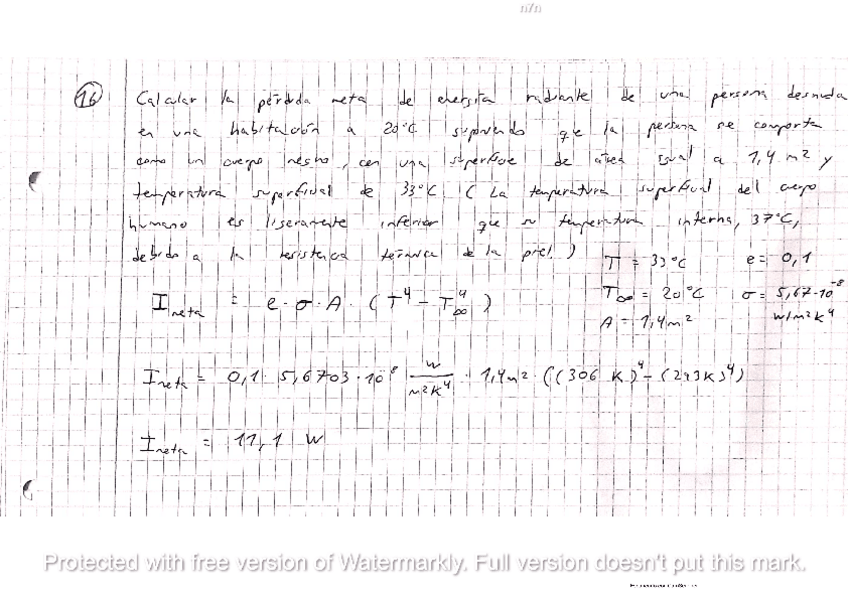 n/n
16 Calcular la pérdida neta de energía radiante de una persona desnuda
en una habitación a 20°C suponiendo que la persona se comporta
como un cuerpo negro, con una superficie de área igual a 1,4 m² y
temperatura superficial de 33°C (La temperatura superficial del cuerpo
humano es ligeramente inferior que su temperatura interna, 37°C,
debido a la resistencia térmica de la piel)
T = 33°C e = 0,1
T∞ = 20°C σ = 5,67·10⁻⁸
A = 1,4m² W/m²K⁴
I neta = e·σ·A·(T⁴ - T∞⁴)
I neta = 0,1· 5,6703·10⁻⁸ W/m²K⁴ · 1,4m² ((306 K)⁴ - (293K)⁴)
I neta = 11,1 W
Protected with free version of Watermarkly. Full version doesn't put this mark.